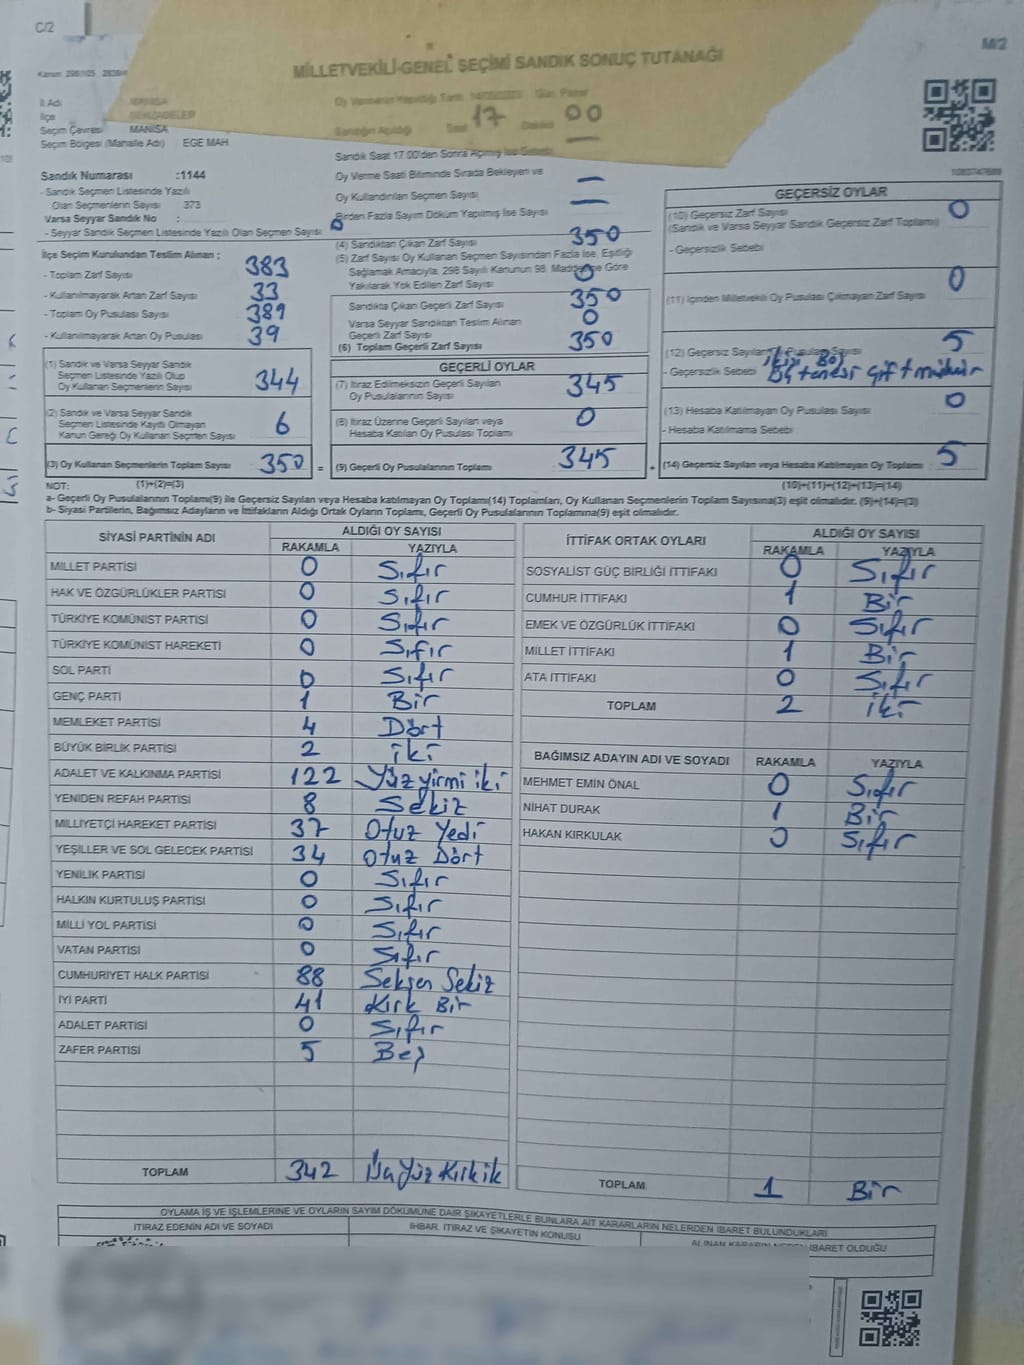 C/2
M/2
MİLLETVEKİLİ GENEL SEÇİMİ SANDIK SONUÇ TUTANAĞI
İl Adı MANİSA
İlçe
Seçim Çevresi MANİSA
Seçim Bölgesi (Mahalle Adı) EGE MAH.
Oy Vermenin Yapıldığı Tarih 14/05/2023 Gün Pazar
Sandığın Açıldığı Saat 17 Dakika 00
Sandık Saat 17.00'den Sonra Açılmış İse Sebebi
Oy Verme Saati Bitiminde Sırada Bekleyen ve
Oy Kullandırılan Seçmen Sayısı
Birden Fazla Sayım Döküm Yapılmış İse Sayısı
Sandık Numarası :1144
- Sandık Seçmen Listesinde Yazılı
Olan Seçmenlerin Sayısı 373
Varsa Seyyar Sandık No :
- Seyyar Sandık Seçmen Listesinde Yazılı Olan Seçmen Sayısı 0
İlçe Seçim Kurulundan Teslim Alınan :
- Toplam Zarf Sayısı 383
- Kullanılmayarak Artan Zarf Sayısı 33
- Toplam Oy Pusulası Sayısı 389
- Kullanılmayarak Artan Oy Pusulası 39
(1) Sandık ve Varsa Seyyar Sandık
Seçmen Listesinde Yazılı Olup
Oy Kullanan Seçmenlerin Sayısı 344
(2) Sandık ve Varsa Seyyar Sandık
Seçmen Listesinde Kayıtlı Olmayan
Kanun Gereği Oy Kullanan Seçmen Sayısı 6
(3) Oy Kullanan Seçmenlerin Toplam Sayısı 350 =
(1)+(2)=(3)
(4) Sandıktan Çıkan Zarf Sayısı 350
(5) Zarf Sayısı Oy Kullanan Seçmen Sayısından Fazla İse, Eşitliği
Sağlamak Amacıyla, 298 Sayılı Kanunun 98. Maddesine Göre
Yakılarak Yok Edilen Zarf Sayısı 0
Sandıkta Çıkan Geçerli Zarf Sayısı 350
Varsa Seyyar Sandıktan Teslim Alınan
Geçerli Zarf Sayısı 0
(6) Toplam Geçerli Zarf Sayısı 350
GEÇERLİ OYLAR
(7) İtiraz Edilmeksizin Geçerli Sayılan
Oy Pusulalarının Sayısı 345
(8) İtiraz Üzerine Geçerli Sayılan veya
Hesaba Katılan Oy Pusulası Toplamı 0
(9) Geçerli Oy Pusulalarının Toplamı 345 +
GEÇERSİZ OYLAR
(10) Geçersiz Zarf Sayısı 0
(Sandık ve Varsa Seyyar Sandık Geçersiz Zarf Toplamı)
- Geçersizlik Sebebi
(11) İçinden Milletvekili Oy Pusulası Çıkmayan Zarf Sayısı 0
(12) Geçersiz Sayılan Oy Pusulası Sayısı 5
- Geçersizlik Sebebi İkisi Boş
Üç tanesi çift mühür
(13) Hesaba Katılmayan Oy Pusulası Sayısı 0
- Hesaba Katılmama Sebebi
(14) Geçersiz Sayılan veya Hesaba Katılmayan Oy Toplamı 5
(10)+(11)+(12)+(13)=(14)
NOT:
a- Geçerli Oy Pusulalarının Toplamı(9) ile Geçersiz Sayılan veya Hesaba katılmayan Oy Toplamı(14) Toplamları, Oy Kullanan Seçmenlerin Toplam Sayısına(3) eşit olmalıdır. (9)+(14)=(3)
b- Siyasi Partilerin, Bağımsız Adayların ve İttifakların Aldığı Ortak Oyların Toplamı, Geçerli Oy Pusulalarının Toplamına(9) eşit olmalıdır.
SİYASİ PARTİNİN ADI ALDIĞI OY SAYISI
RAKAMLA YAZIYLA
MİLLET PARTİSİ 0 Sıfır
HAK VE ÖZGÜRLÜKLER PARTİSİ 0 Sıfır
TÜRKİYE KOMÜNİST PARTİSİ 0 Sıfır
TÜRKİYE KOMÜNİST HAREKETİ 0 Sıfır
SOL PARTİ 0 Sıfır
GENÇ PARTİ 1 Bir
MEMLEKET PARTİSİ 4 Dört
BÜYÜK BİRLİK PARTİSİ 2 iki
ADALET VE KALKINMA PARTİSİ 122 Yüz yirmi iki
YENİDEN REFAH PARTİSİ 8 Sekiz
MİLLİYETÇİ HAREKET PARTİSİ 37 Otuz Yedi
YEŞİLLER VE SOL GELECEK PARTİSİ 34 Otuz Dört
YENİLİK PARTİSİ 0 Sıfır
HALKIN KURTULUŞ PARTİSİ 0 Sıfır
MİLLİ YOL PARTİSİ 0 Sıfır
VATAN PARTİSİ 0 Sıfır
CUMHURİYET HALK PARTİSİ 88 Seksen Sekiz
İYİ PARTİ 41 Kırk Bir
ADALET PARTİSİ 0 Sıfır
ZAFER PARTİSİ 5 Beş
TOPLAM 342 Üç Yüz Kırk ik
İTTİFAK ORTAK OYLARI ALDIĞI OY SAYISI
RAKAMLA YAZIYLA
SOSYALİST GÜÇ BİRLİĞİ İTTİFAKI 0 Sıfır
CUMHUR İTTİFAKI 1 Bir
EMEK VE ÖZGÜRLÜK İTTİFAKI 0 Sıfır
MİLLET İTTİFAKI 1 Bir
ATA İTTİFAKI 0 Sıfır
TOPLAM 2 iki
BAĞIMSIZ ADAYIN ADI VE SOYADI RAKAMLA YAZIYLA
MEHMET EMİN ÖNAL 0 Sıfır
NİHAT DURAK 1 Bir
HAKAN KIRKULAK 0 Sıfır
TOPLAM 1 Bir
OYLAMA İŞ VE İŞLEMLERİNE VE OYLARIN SAYIM DÖKÜMÜNE DAİR ŞİKAYETLERLE BUNLARA AİT KARARLARIN NELERDEN İBARET BULUNDUKLARI
İTİRAZ EDENİN ADI VE SOYADI İHBAR, İTİRAZ VE ŞİKAYETİN KONUSU ALINAN KARARIN NEDEN İBARET OLDUĞU